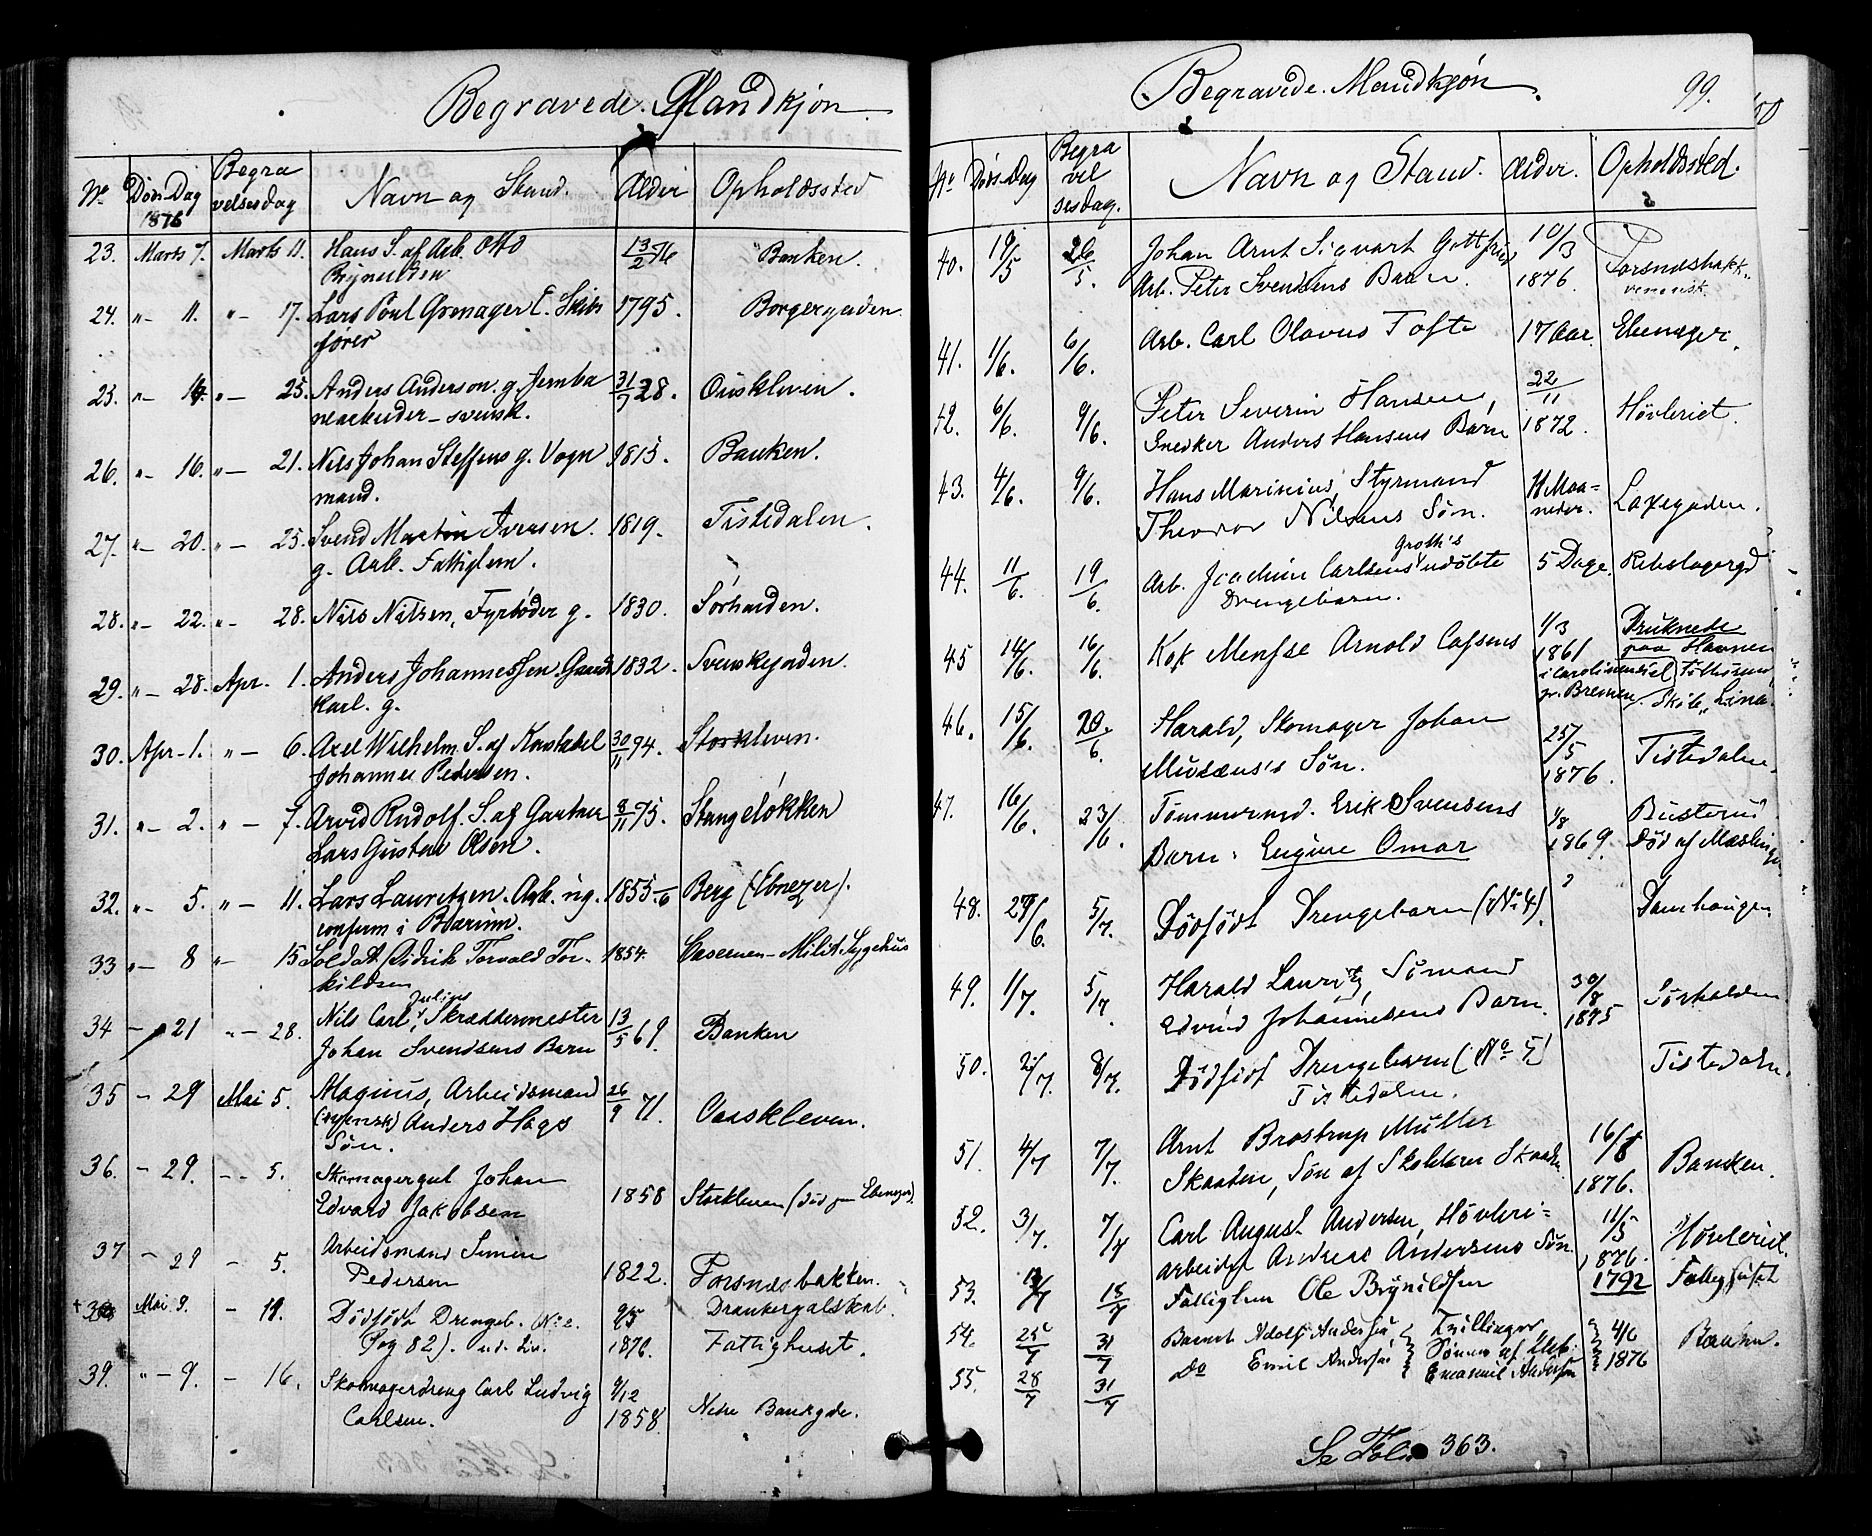 Begravede. Mandkjøn
No Døds-Dag 1876 Begravelsesdag Navn og Stand. Alder Opholdssted
23. Marts 7. Marts 11. Hans S. af Arb. Otto 13/2 76 Banken.
Brynildsen
24. "- 11. "- 17. Lars Poul Grenager E. Skibs 1795. Borgergaden.
fører
25. "- 14. "- 25. Anders Anderson. g. Jernba 31/7 28. Ouskleven.
nearbeider - svensk.
26. "- 16. "- 21. Nils Johan Steffens g. Vogn 1815. Banken.
mand.
27. "- 20. "- 25. Svend Martin Iversen. 1819. Tistedalen.
g. Arb. Fattiglem.
28. "- 22. "- 28. Nils Nilsen, Fyrbøder g. 1830. Sørhalden.
29. "- 28. Apr. 1. Anders Johannessen Gaards 1832. Svenskegaden.
karl. g.
30. Apr. 1. "- 6. Axel Wilhelm. S. af Konstabel 30/11 74. Storkleven.
Johannes Pedersen.
31. "- 2. "- 7. Arvid Rudolf. S. af Gartner 8/11 75. Stangeløkken
Lars Gustav Olsen.
32. "- 5. "- 11. Lars Lauretzen. Arb. ug. 1855-6 Berg (Ebnezer).
confirm i Bærum.
33 "- 8 "- 15 Soldat Didrik Torvald Tor- 1854. Casernen - Milit. Sygehus
kildsen
34 - 21 "- 28. Nils Carl Julius, Skræddermester 13/5 69. Banken
Johan Svendsens Barn
35 - 29 Mai 5. Magnus, Arbeidsmand 26/9 71. Ouskleven.
(svensk) Anders Hags
Søn.
36. - 29. -- 5. Skomagergut Johan 1858 Storkleven (død paa Ebenezer).
Edvard Jakobsen
37 - 29 - 5. Arbeidsmand Simen
Pedersen 1822. Forsnæsbakken.
38 Mai 9. - 11. Dødfødt Drengeb. No 2. 9/5 Drankergalskab.
(Pag 82). 1876. Fattighuset.
39. "- 9. - 16. Skomagerdreng Carl Ludvig 9/12
Carlsen. 1858. Nedre Bankgde.
Begravede. Mandkjøn. 99.
No Døds-Dag Begravelsesdag. Navn og Stand. Alder. Opholdssted.
40. 19/5 26/5. Johan Arnt Sigvart Gottfried 10/3 Forsnæsbakk.
Arb. Peter Svendsens Barn. 1876. venersk.
41. 1/6. 6/6. Arb. Carl Olavus Tofte 17 Aar. Ebenezer.
42. 6/6. 9/6. Peter Severin Hansen, 22/11 Høvleriet.
Snedker Anders Hansens Barn 1872.
43. 4/6. 9/6. Hans Marinius, Styrmand 11 Maa= Laxegaden.
Theodor Nilsens Søn. neder.
44. 11/6. 19/6. Arb. Joachim Carlsens Groth's udøbte 5 Dage. Rebslagergd
Drengebarn.
45 14/6. 16/6. Kok Menfse Arnold Cassens 1/3 Druknede
1861 paa Havnen
i Carolinensiel
pr. Bremen. Skib "Lina
46. 15/6. 20/6. Harald, Skomager Johan 25/5 Tistedalen.
Musæus's Søn. 1876.
47. 16/6. 23/6. Tømmermd. Erik Svensens 1/8 Busterud
Barn: Eugine Omar 1869. Død af Mæslinger
48. 29/6. 5/7. Dødfødt Drengebarn (No 4). Damhaugen
49. 1/7. 5/7. Harald Lauritz, Sømand 30/8 Sørhalden
Edvind Johannesens Barn. 1875
50. 2/7. 8/7. Dødfødt Drengebarn (No 5) Tistedalen.
Tistedalen.
51. 4/7 7/7. Arnt Brostrup Müller 16/8 Banken.
Skaaden, Søn af Skolelærer Skaaden 1876.
52. 3/7. 7/7 Carl August Andersen, Høvleri= 11/5 Høvleriet.
arbeider Andreas Andersens Søn. 1876.
53. 12/7 15/7 Fattiglem Ole Brynildsen 1792 Fattighuset
54. 25/7 31/7 Barnet Adolf Andersen, } Tvillinger 4/6 Banken.
55. 28/7 31/7 Do Emil Andersen } Sønner af Arb. 1876
Emanuel Andersen
Se Folio 363.